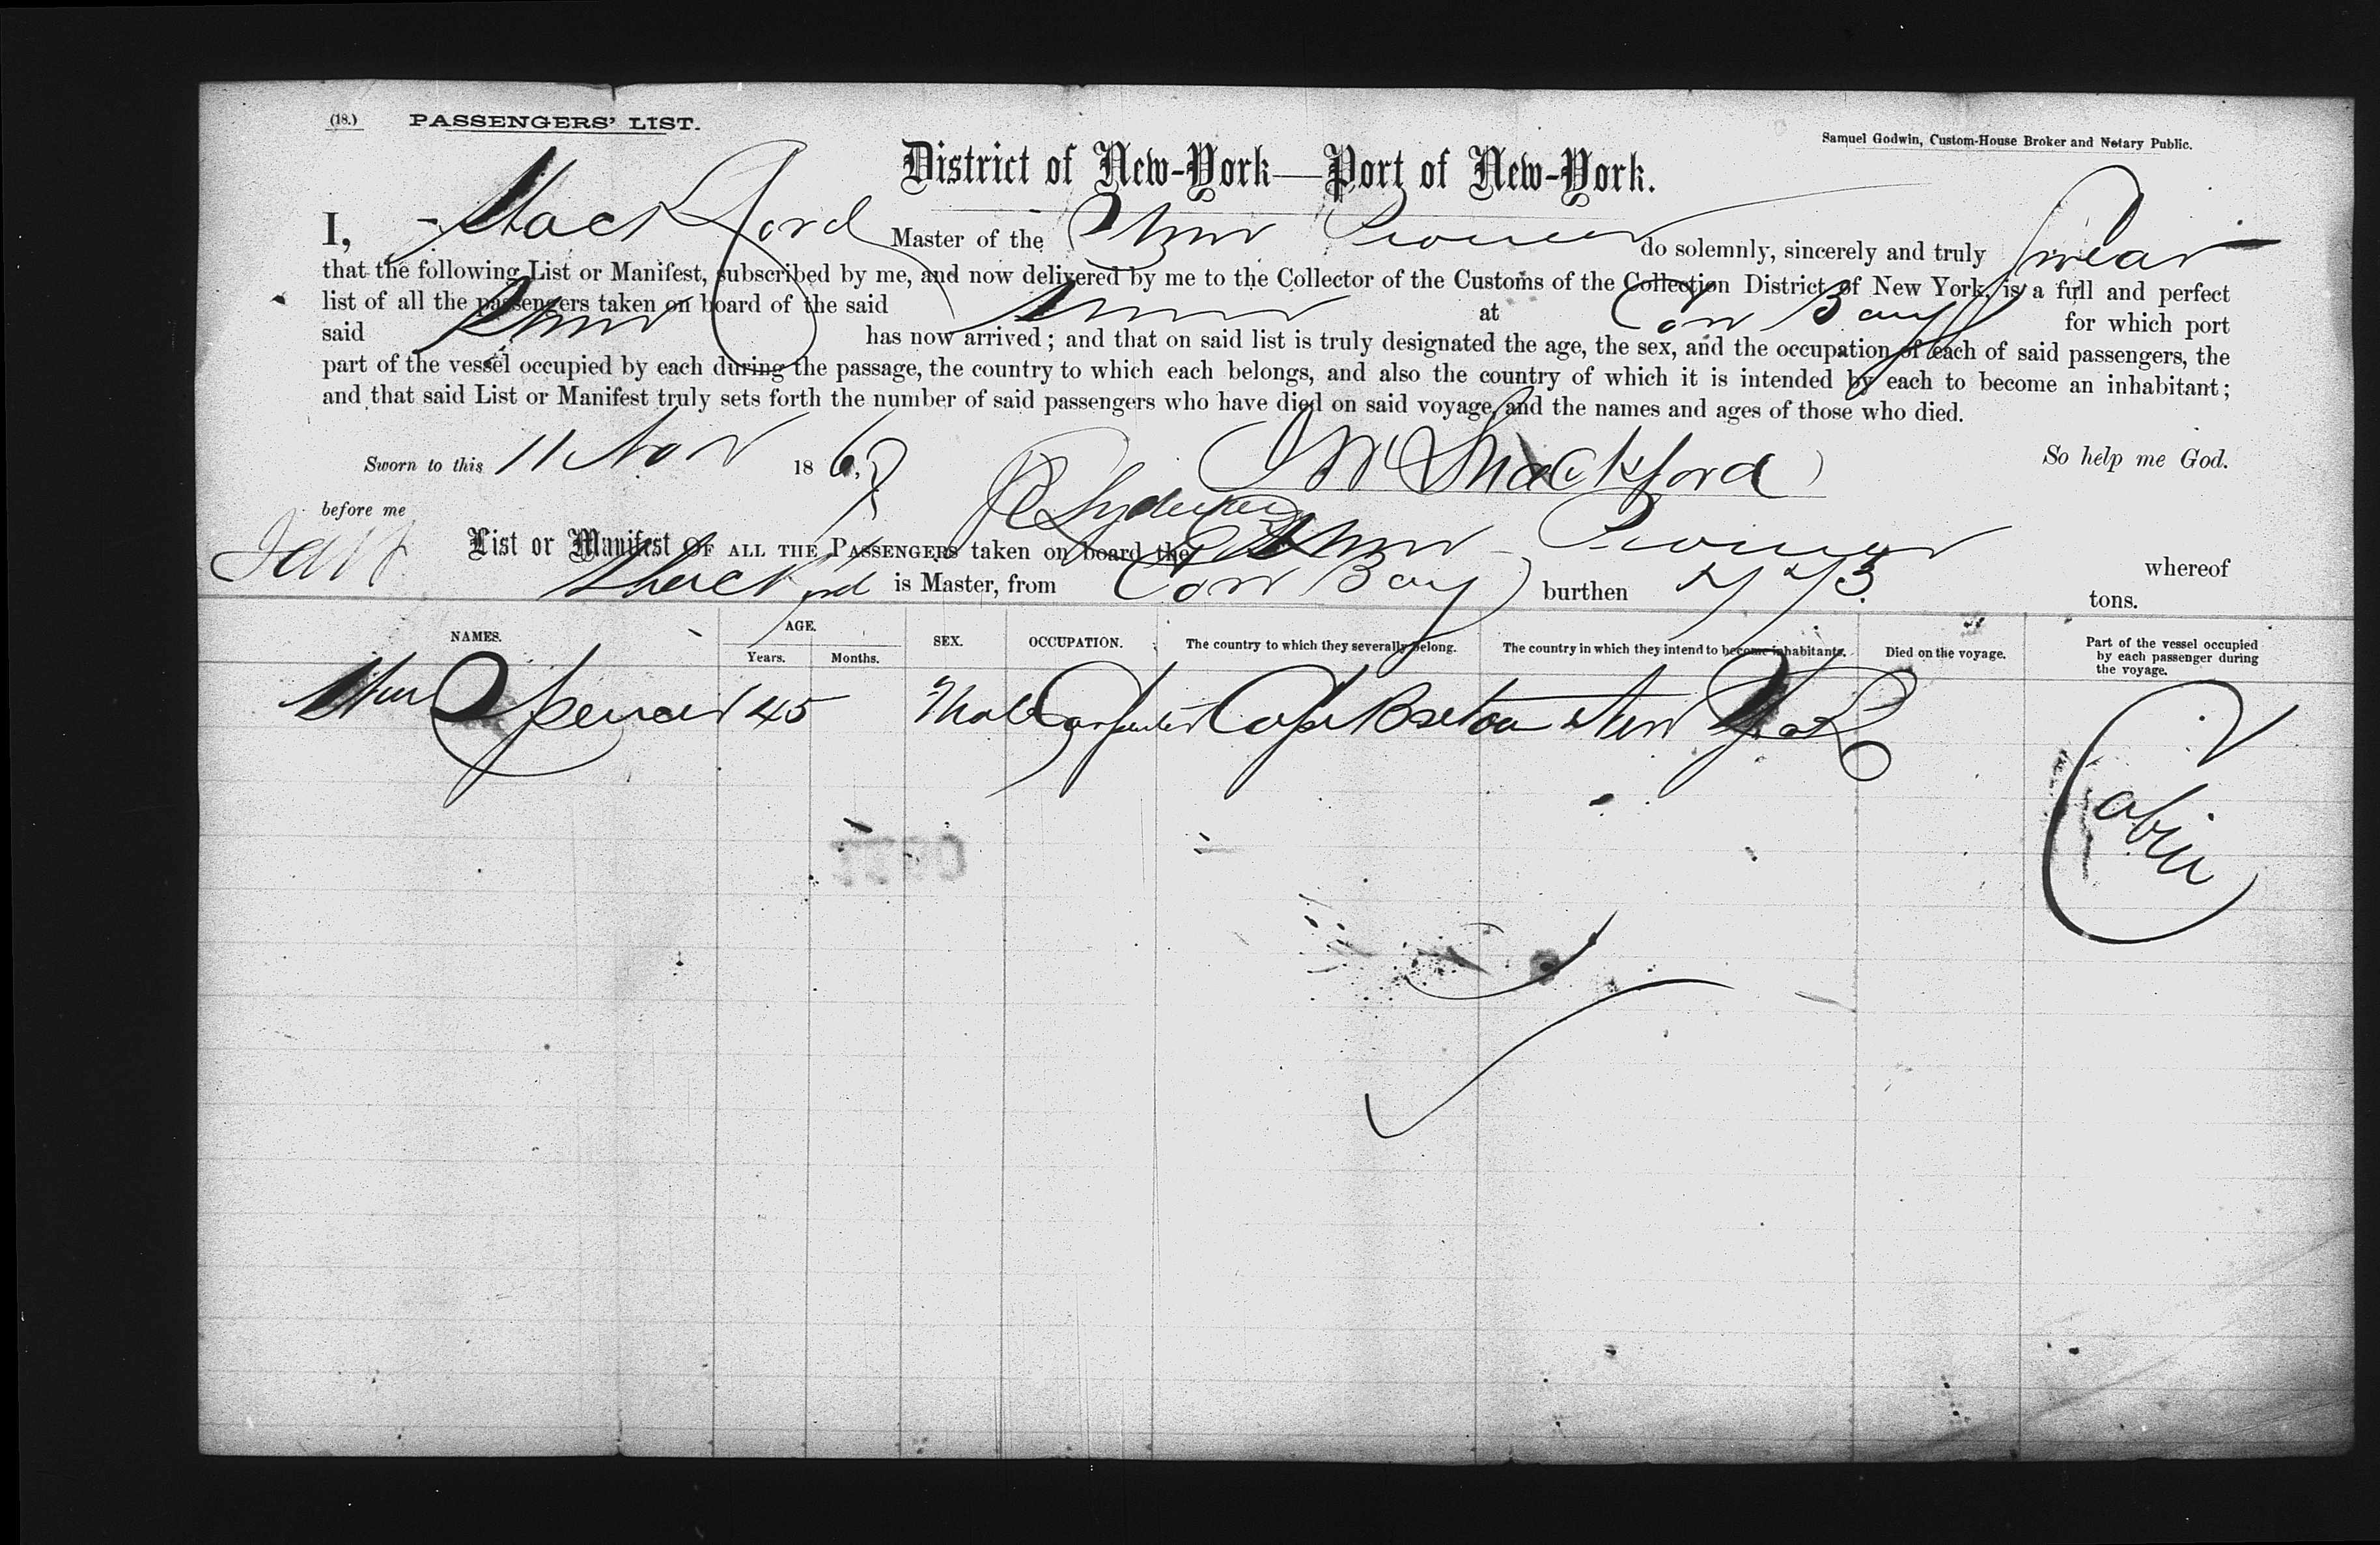 (18.) PASSENGERS' LIST.
Samuel Godwin, Custom-House Broker and Notary Public.
District of New-York—Port of New-York.
I, Shackford Master of the Schnr Pioneer do solemnly, sincerely and truly Swear
that the following List or Manifest, subscribed by me, and now delivered by me to the Collector of the Customs of the Collection District of New York, is a full and perfect
list of all the passengers taken on board of the said Schnr at Cow Bay for which port
said Schnr has now arrived; and that on said list is truly designated the age, the sex, and the occupation of each of said passengers, the
part of the vessel occupied by each during the passage, the country to which each belongs, and also the country of which it is intended by each to become an inhabitant;
and that said List or Manifest truly sets forth the number of said passengers who have died on said voyage, and the names and ages of those who died.
Sworn to this 11 Nov 1867 W Shackford So help me God.
before me
List or Manifest OF ALL THE PASSENGERS taken on board the Schnr Pioneer whereof
Shackford is Master, from Cow Bay burthen 223 tons.
NAMES. AGE. SEX. OCCUPATION. The country to which they severally belong. The country in which they intend to become inhabitants. Died on the voyage. Part of the vessel occupied by each passenger during the voyage.
Years. Months.
Wm Spencer 45 Male Carpenter Cape Breton New York
Cabin